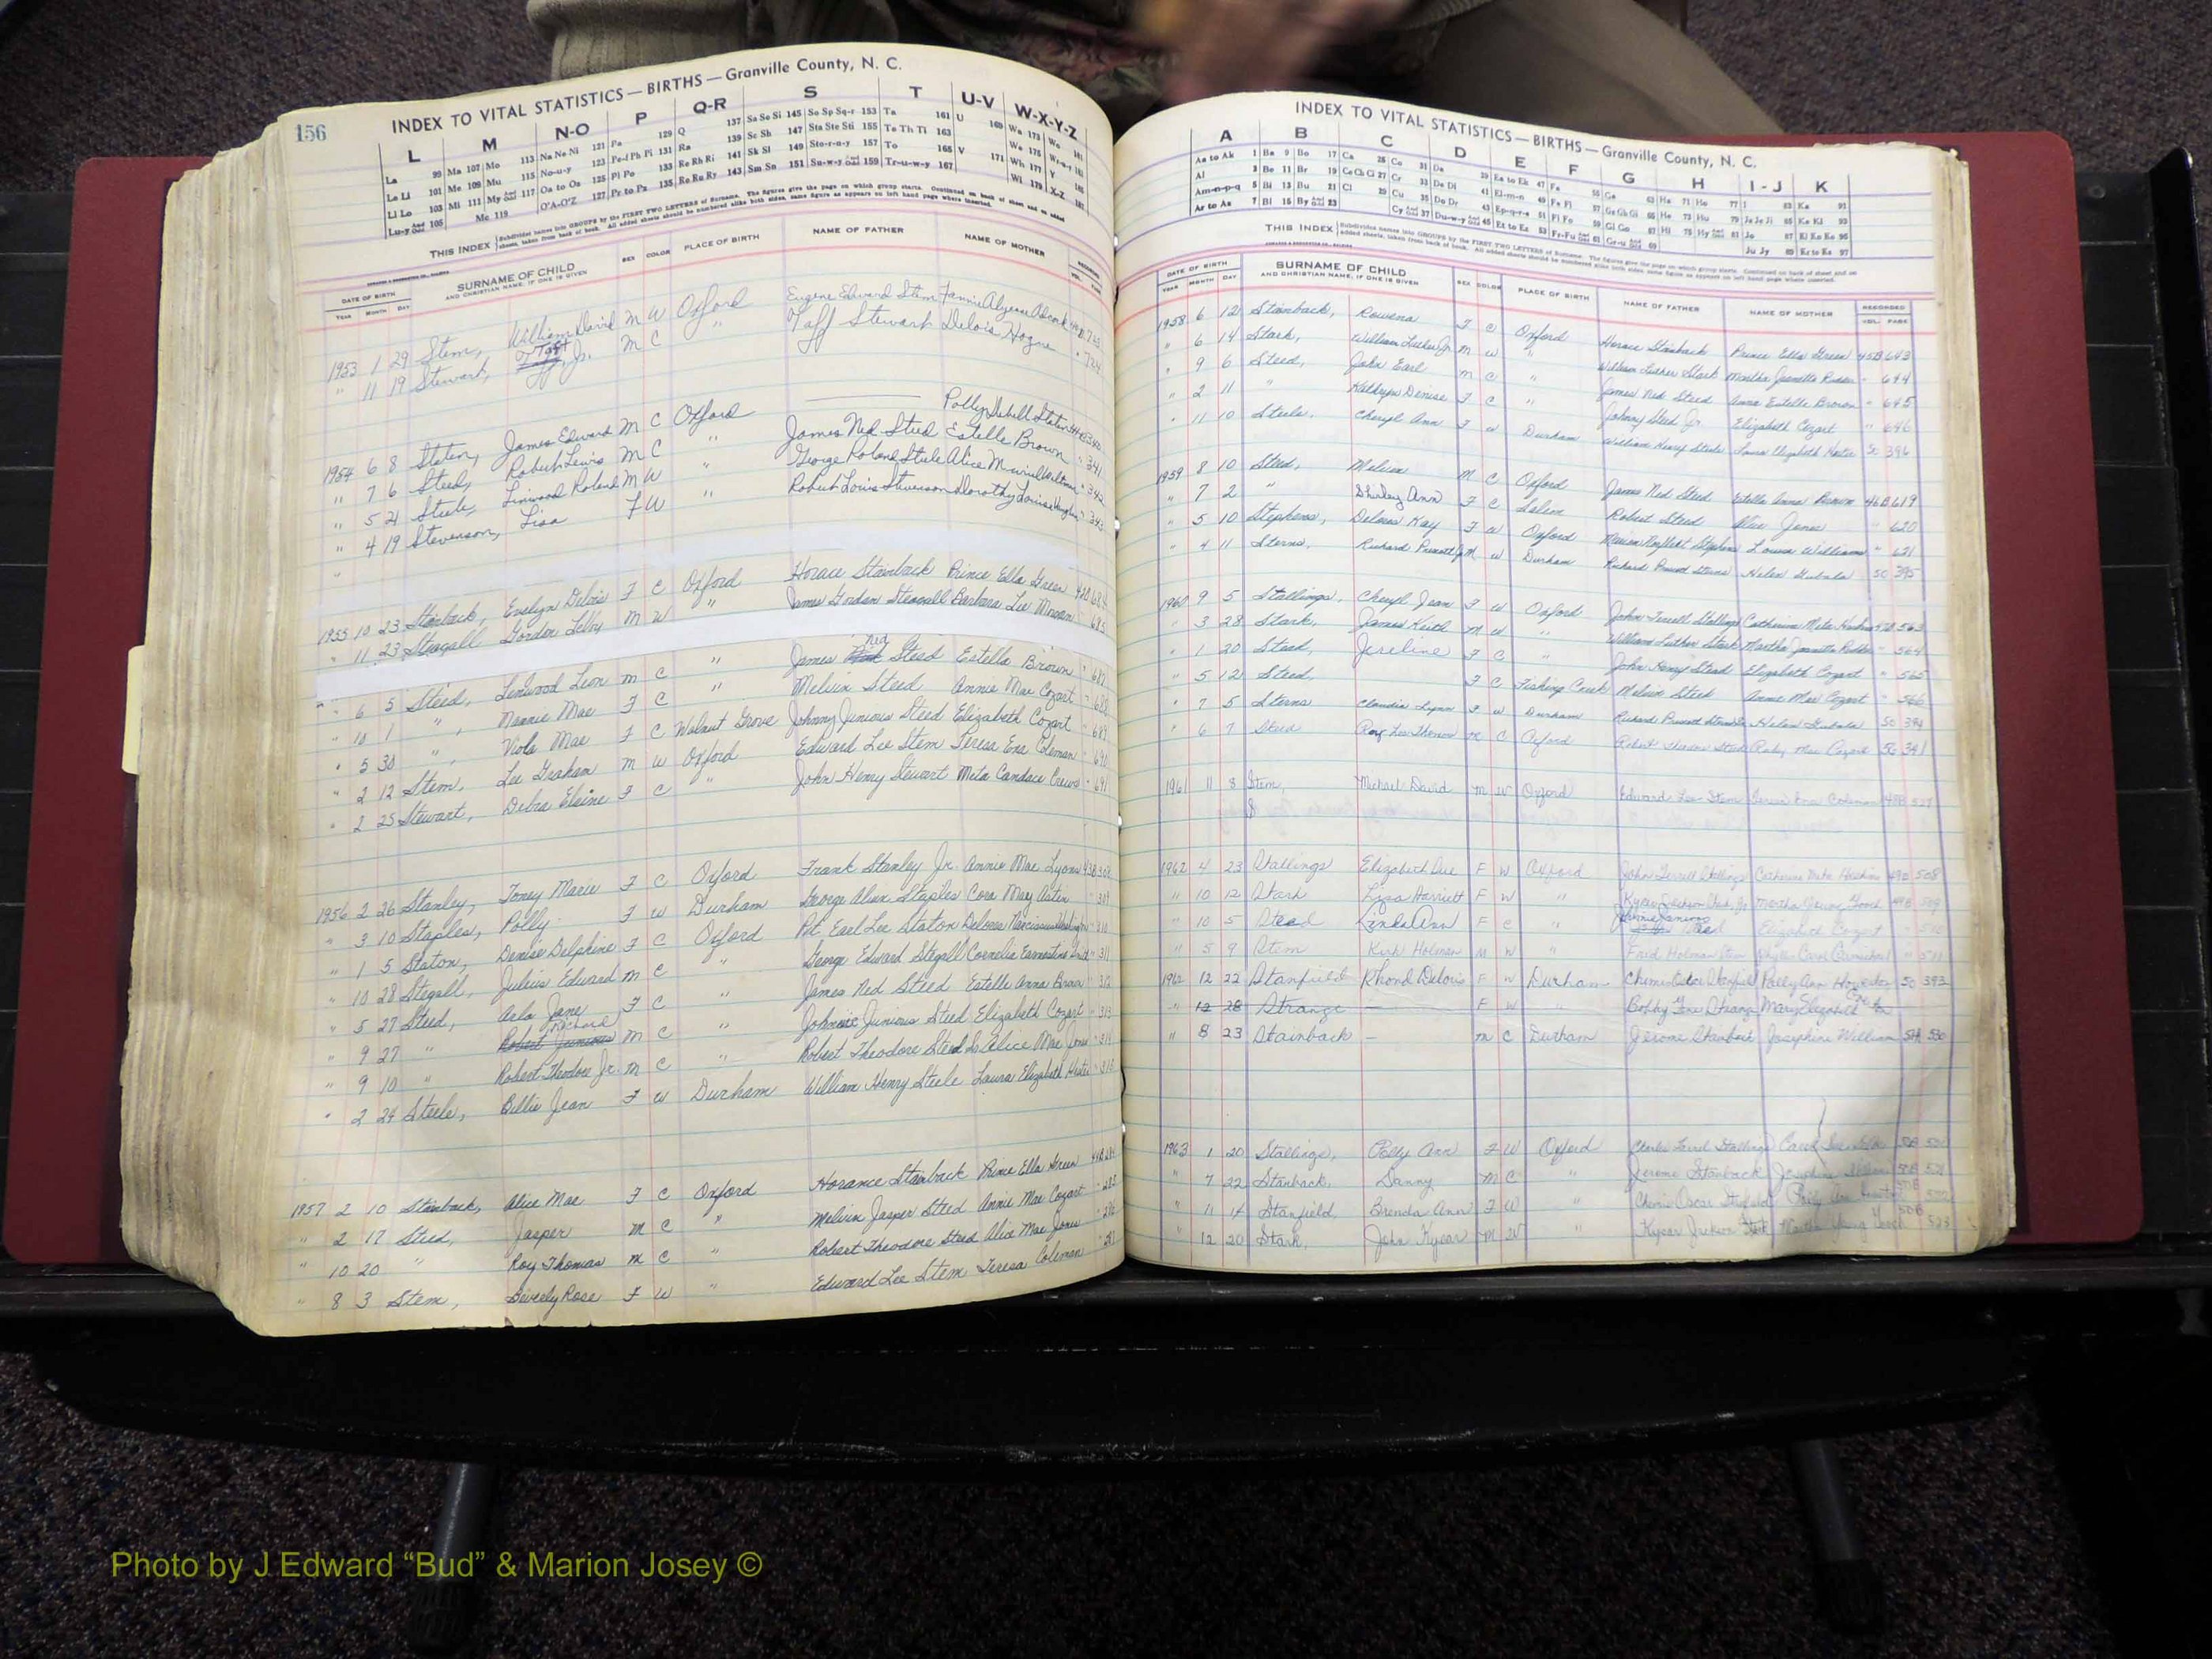 156
INDEX TO VITAL STATISTICS — BIRTHS — Granville County, N. C.
L M N-O P Q-R S T U-V W-X-Y-Z
La 99 Ma 107 Mo 113 Na Ne Ni 121 Pa 129 Q 137 Sa Se Si 145 So Sp Sq-r 153 Ta 161 U 169 Wa 173 Wo 181
Le Li 101 Me 109 Mu 115 No-u-y 123 Pe-f Ph Pi 131 Ra 139 Sc Sh 147 Sta Ste Sti 155 Te Th Ti 163 We 175
Ll Lo 103 Mi 111 My And Odd 117 Oa to Os 125 Pl Po 133 Re Rh Ri 141 Sk Sl 149 Sto-r-u-y 157 To 165 V 171 Wh 177 Y
Lu-y And Odd 105 Mc 119 O'A-O'Z 127 Pr to Pz 135 Ro Ru Ry 143 Sm Sn 151 Su-w-y And Odd 159 Tr-u-w-y 167 Wi 179 X-Z 187
THIS INDEX Subdivides names into GROUPS by the FIRST TWO LETTERS of Surname. The figures give the page on which group starts. Continued on back of sheet and on added sheets, taken from back of book. All added sheets should be numbered alike both sides, same figure as appears on left hand page where inserted.
DATE OF BIRTH YEAR MONTH DAY SURNAME OF CHILD AND CHRISTIAN NAME, IF ONE IS GIVEN SEX COLOR PLACE OF BIRTH NAME OF FATHER NAME OF MOTHER RECORDED VOL. PAGE
1953 1 29 Stem, William David M W Oxford Eugene Edward Stem Fannie
" 11 19 Stewart, Taft Jr. M C " Taff Stewart Delois Hogue " 724
1954 6 8 Staton, James Edward M C Oxford Polly Staton
" 7 6 Steed, Robert Lewis M C " James Ned Steed Estelle Brown " 341
" 5 21 Steele, Linwood Roland M W " George Roland Steele Alice " 342
" 4 19 Stevenson, Lisa F W " Robert Louis Stevenson Dorothy Louise " 343
1955 10 23 Stainback, Evelyn Delois F C Oxford Horace Stainback Prince Ella Green
" 11 23 Steagall Gorden Selby M W " James Gorden Steagall Barbara Lee Morgan " 685
" 6 5 Steed, Linwood Leon M C " James Ned Steed Estella Brown " 687
" 10 1 " Mannie Mae F C " Melvin Steed Annie Mae Cozart " 688
" 5 30 " Viola Mae F C Walnut Grove Johnny Junious Steed Elizabeth Cozart " 689
" 2 12 Stem, Lee Graham M W Oxford Edward Lee Stem Teresa Ena Coleman " 690
" 2 25 Stewart, Debra Elaine F C " John Henry Stewart Meta Candace Crews " 691
1956 2 26 Stanley, Toney Marie F C Oxford Frank Stanley Jr. Annie Mae Lyons
" 3 10 Staples, Polly F W Durham George Alvin Staples Cora May Astin " 309
" 1 5 Staton, Denise Delphine F C Oxford Pvt Earl Lee Staton Delores Narcissus " 310
" 10 28 Stegall, Julius Edward M C " George Edward Stegall Cornelia Earnestine " 311
" 5 27 Steed, Arlo Jane F C " James Ned Steed Estelle Anna Brown " 312
" 9 27 " Robert Richard M C " Johnnie Junious Steed Elizabeth Cozart " 313
" 9 10 " Robert Theodore Jr. M C " Robert Theodore Steed Sr Alice Mae Jones " 314
" 2 24 Steele, Billie Jean F W Durham William Henry Steele Laura Elizabeth Hester " 315
1957 2 10 Stainback, Alice Mae F C Oxford Horance Stainback Prince Ella Green
" 2 17 Steed, Jasper M C " Melvin Jasper Steed Annie Mae Cozart
" 10 20 " Roy Thomas M C " Robert Theodore Steed Alice Mae Jones
" 8 3 Stem, Beverly Rose F W " Edward Lee Stem Teresa Coleman
INDEX TO VITAL STATISTICS — BIRTHS — Granville County, N. C.
A B C D E F G H I - J K
Aa to Ak 1 Ba 9 Bo 17 Ca 25 Co 31 Da 39 Ea to Ek 47 Fa 55 Ga 63 Ha 71 Ho 77 I 83 Ka 91
Al 3 Be 11 Br 19 Ce Ch Ci 27 Cr 33 De Di 41 El-m-n 49 Fe Fi 57 Ge Gh Gi 65 He 73 Hu 79 Ja Je Ji 85 Ke Kl 93
Am-n-p-q 5 Bi 13 Bu 21 Cl 29 Cu 35 Do Dr 43 Ep-q-r-s 51 Fl Fo 59 Gl Go 67 Hi 75 Hy And Odd 81 Jo 87 Ki Kn Ko 95
Ar to Az 7 Bl 15 By And Odd 23 Cy And Odd 37 Du-w-y And Odd 45 Et to Ez 53 Fr-Fu And Odd 61 Gr-u And Odd 69 Ju Jy 89 Kr to Kz 97
THIS INDEX Subdivides names into GROUPS by the FIRST TWO LETTERS of Surname. The figures give the page on which group starts. Continued on back of sheet and on added sheets, taken from back of book. All added sheets should be numbered alike both sides, same figure as appears on left hand page where inserted.
DATE OF BIRTH YEAR MONTH DAY SURNAME OF CHILD AND CHRISTIAN NAME, IF ONE IS GIVEN SEX COLOR PLACE OF BIRTH NAME OF FATHER NAME OF MOTHER RECORDED VOL. PAGE
1958 6 12 Stainback, Rowena F C Oxford Horace Stainback Prince Ella Green 45B 643
" 6 14 Stark, William Luther Jr M W " William Luther Stark Martha Jeanette " 644
" 9 6 Steed, John Earl M C " James Ned Steed Anna Estelle Brown " 645
" 2 11 " Kathryn Denise F C " Johnny Steed Jr. Elizabeth Cozart " 646
" 11 10 Steele, Cheryl Ann F W Durham William Henry Steele Laura Elizabeth Hester 50 396
1959 8 10 Steed, Melvin M C Oxford James Ned Steed Estelle Anna Brown 46B 619
" 7 2 " Shirley Ann F C Salem Robert Steed Alice Jones " 620
" 5 10 Stephens, Delores Kay F W Oxford Marion Norfleet Stephens Louise Williams " 621
" 4 11 Sterns, Richard Prescott Jr M W Durham Richard Prescott Sterns Helen Gubala 50 395
1960 9 5 Stallings, Cheryl Jean F W Oxford John Terrell Stallings Catherine Meta 563
" 3 28 Stark, James Keith M W " William Luther Stark Martha Jeanette " 564
" 1 20 Steed, Jereline F C " John Henry Steed Elizabeth Cozart " 565
" 5 12 Steed, F C Fishing Creek Melvin Steed Annie Mae Cozart " 566
" 7 5 Sterns Claudia Lynn F W Durham Richard Prescott Sterns Helen Gubala 50 394
" 6 7 Steed Roy Lee M C Oxford Robert Steed Ruby Mae Cozart 50 341
1961 11 8 Stem, Michael David M W Oxford Edward Lee Stem Teresa Ena Coleman 48B 527
8
1962 4 23 Stallings Elizabeth Sue F W Oxford John Terrell Stallings Catherine Meta Hoskins 49B 508
" 10 12 Stark Lisa Harriett F W " Kyear Jackson Stark Jr Martha Young Gooch 49B 509
" 10 5 Steed Linda Ann F C " Johnnie Junious Steed Elizabeth Cozart
" 5 9 Stem Kirk Holman M W " Fred Holman Stem Phyllis Carol Carmichael " 511
1962 12 22 Stanfield Rhond Delois F W Durham Chemis Oscar Stanfield Polly Ann 50 393
" 12 28 Strange — F W Bobby Gene Strange Mary Elizabeth
" 8 23 Stainback - M C Durham Jerome Stainback Josephine William 530
1963 1 20 Stallings, Polly Ann F W Oxford Charles Stallings Carol
" 7 22 Stainback, Danny M C " Jerome Stainback Josephine
" 11 14 Stanfield, Brenda Ann F W " Chemis Oscar Stanfield Polly Ann
" 12 20 Stark, John Kyear M W " Kyear Jackson Stark Martha Young Gooch 523
Photo by J Edward “Bud” & Marion Josey ©